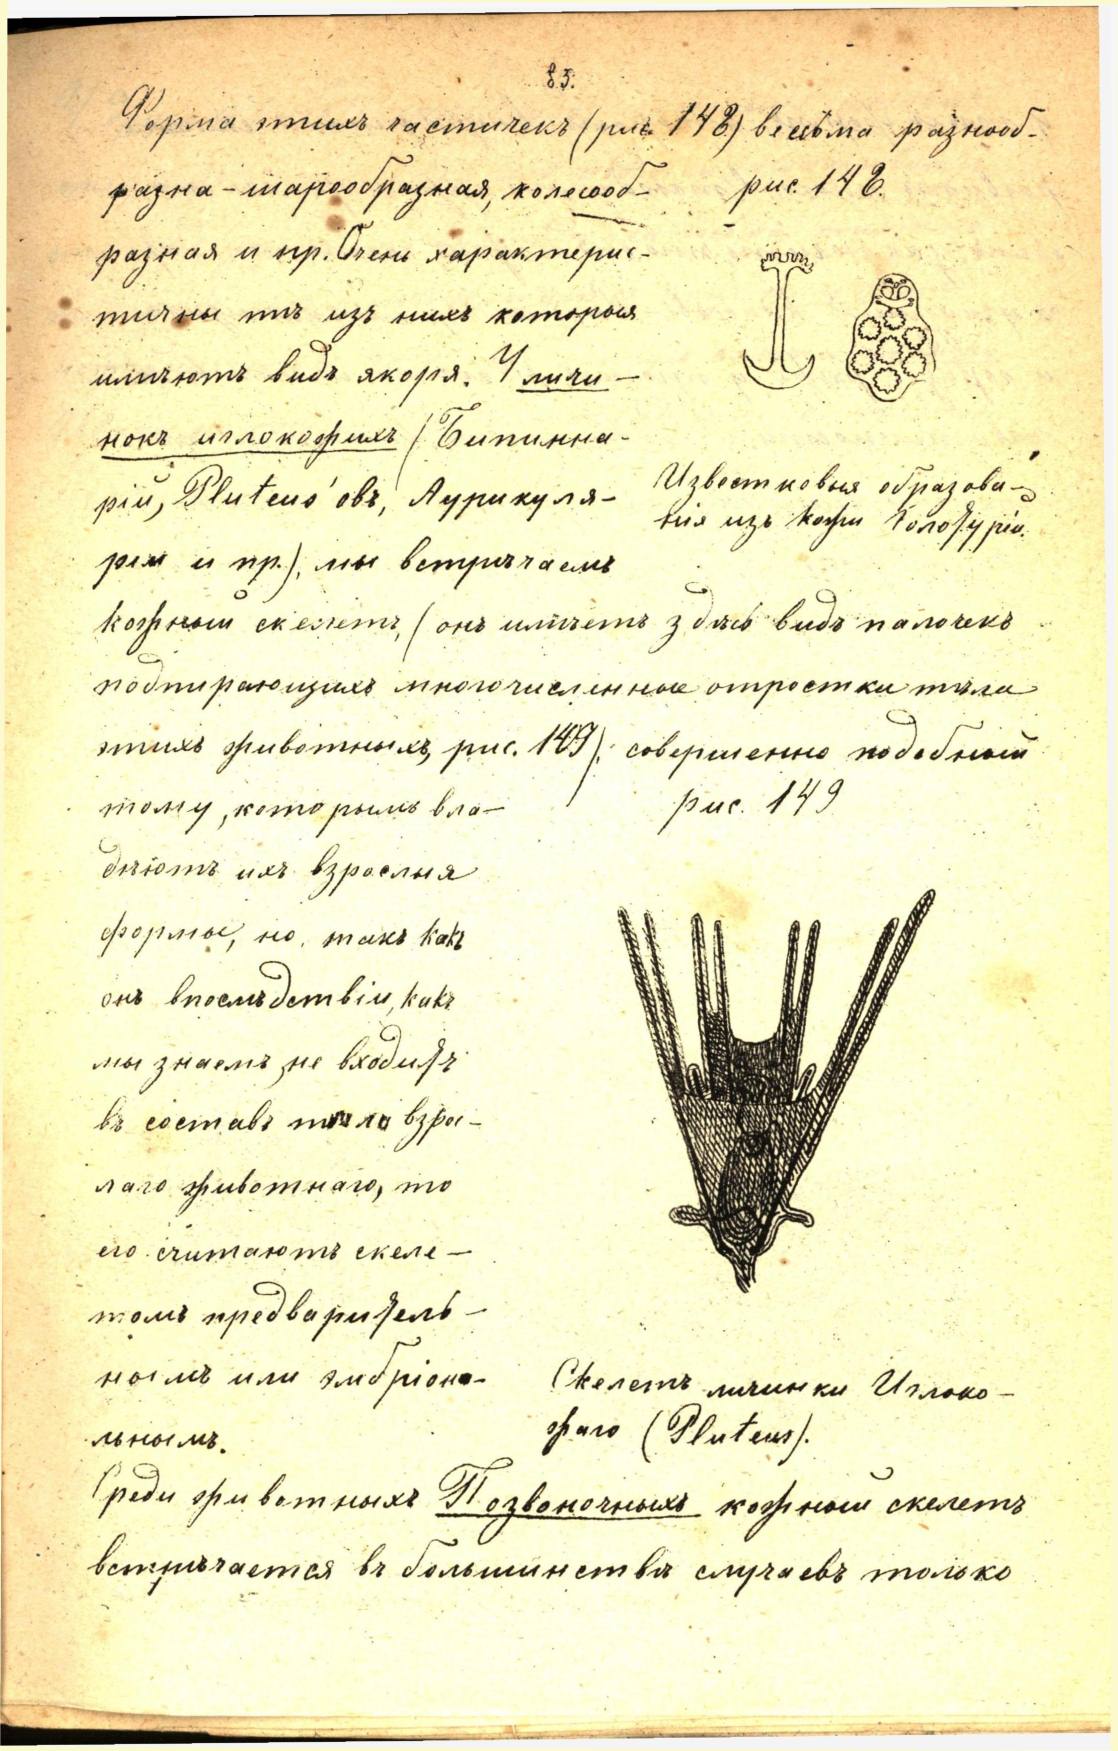 85.
Форма этихъ частичекъ (рис. 148) весьма разнооб-
разна - шарообразная, колесооб-
рис. 148.
разная и пр. Очень характерис-
тичны тѣ изъ нихъ которыя
имѣютъ видъ якоря. У личи-
нокъ иглокожихъ (Бипинна-
рій, Pluteus'овъ, Аурикуля-
рій и пр.), мы встрѣчаемъ
Известковыя образова-
нія изъ кожи Голотурій.
кожный скелетъ, (онъ имѣетъ здѣсь видъ палочекъ
подпирающихъ многочисленные отростки тѣла
этихъ животныхъ, рис. 149), совершенно подобный
тому, которымъ вла-
рис. 149
дѣютъ ихъ взрослыя
формы, но, такъ какъ
онъ впослѣдствіи, какъ
мы знаемъ, не входитъ
въ составъ тѣла взрос-
лаго животнаго, то
его считаютъ скеле-
томъ предваритель-
нымъ или эмбріона-
льнымъ.
Скелетъ личинки Иглоко-
жаго (Pluteus).
Среди животныхъ Позвоночныхъ кожный скелетъ
встрѣчается въ большинствѣ случаевъ только